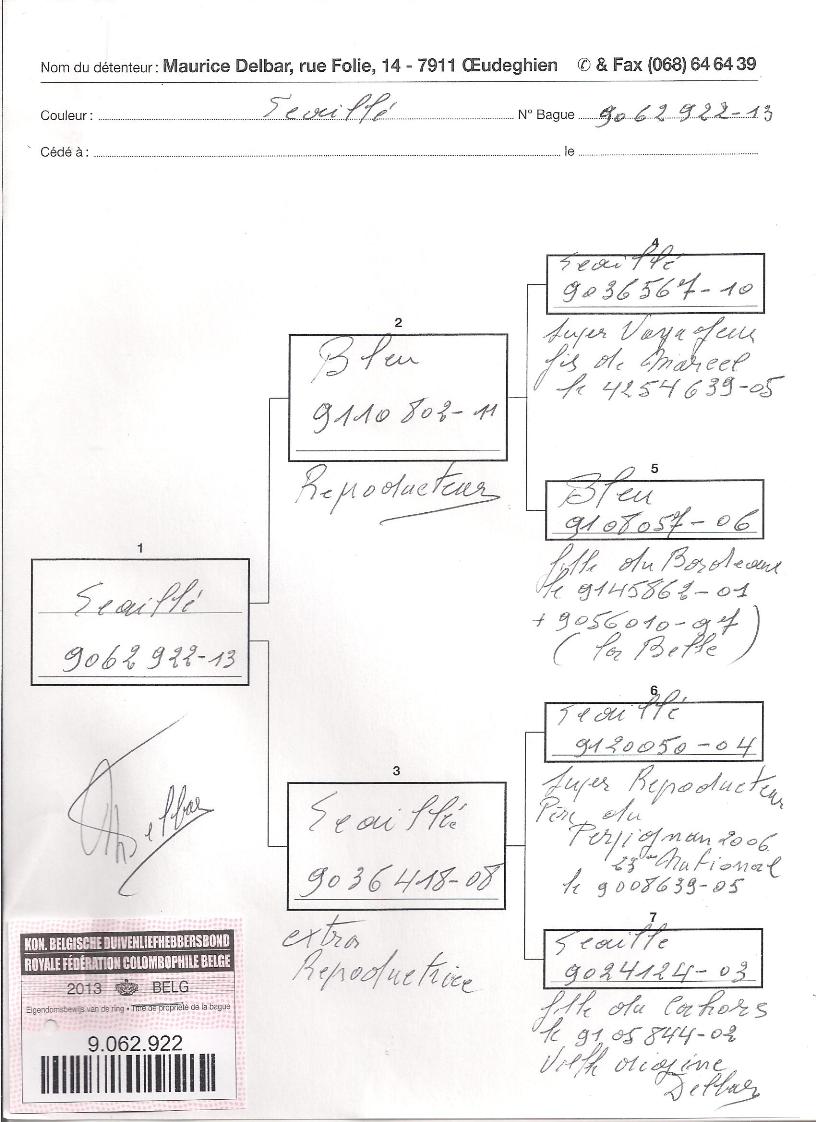 Nom du détenteur : Maurice Delbar, rue Folie, 14 - 7911 Œudeghien ✆ & Fax (068) 64 64 39
Couleur : Ecaillé N° Bague 9062922-13
Cédé à : le
4
Ecaillé
9036567-10
Super Voyageur
fils de Marcel
le 4254639-05
2
Bleu
9110802-11
Reproducteur
5
Bleu
9108057-06
fille du Bordeaux
le 9145862-01
+ 9056010-97
( la Belle )
1
Ecaillé
9062922-13
6
Ecaillé
9120050-04
Super Reproducteur
Père du
Perpignan 2006
23me National
le 9008639-05
3
Ecaillée
9036418-08
extra
Reproductrice
7
Ecaillé
9024124-03
fille du Cahors
le 9105844-02
Vieille origine
Delbar
Delbar
KON. BELGISCHE DUIVENLIEFHEBBERSBOND
ROYALE FÉDÉRATION COLOMBOPHILE BELGE
2013 BELG
Eigendomsbewijs van de ring • Titre de propriété de la bague
9.062.922